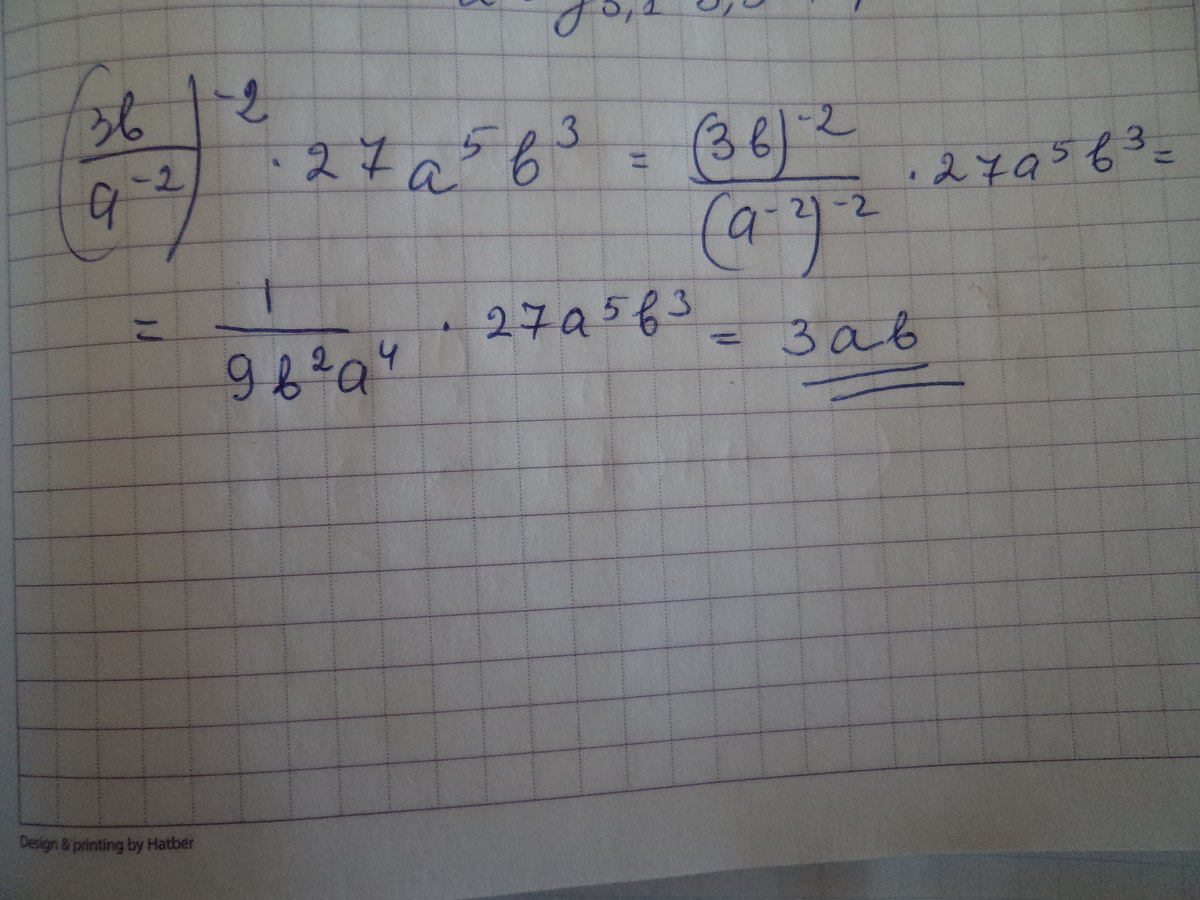 (3b/a⁻²)⁻² · 27a⁵b³ = (3b)⁻²/(a⁻²)⁻² · 27a⁵b³ =
= 1/9b²a⁴ · 27a⁵b³ = 3ab
Design & printing by Hatber